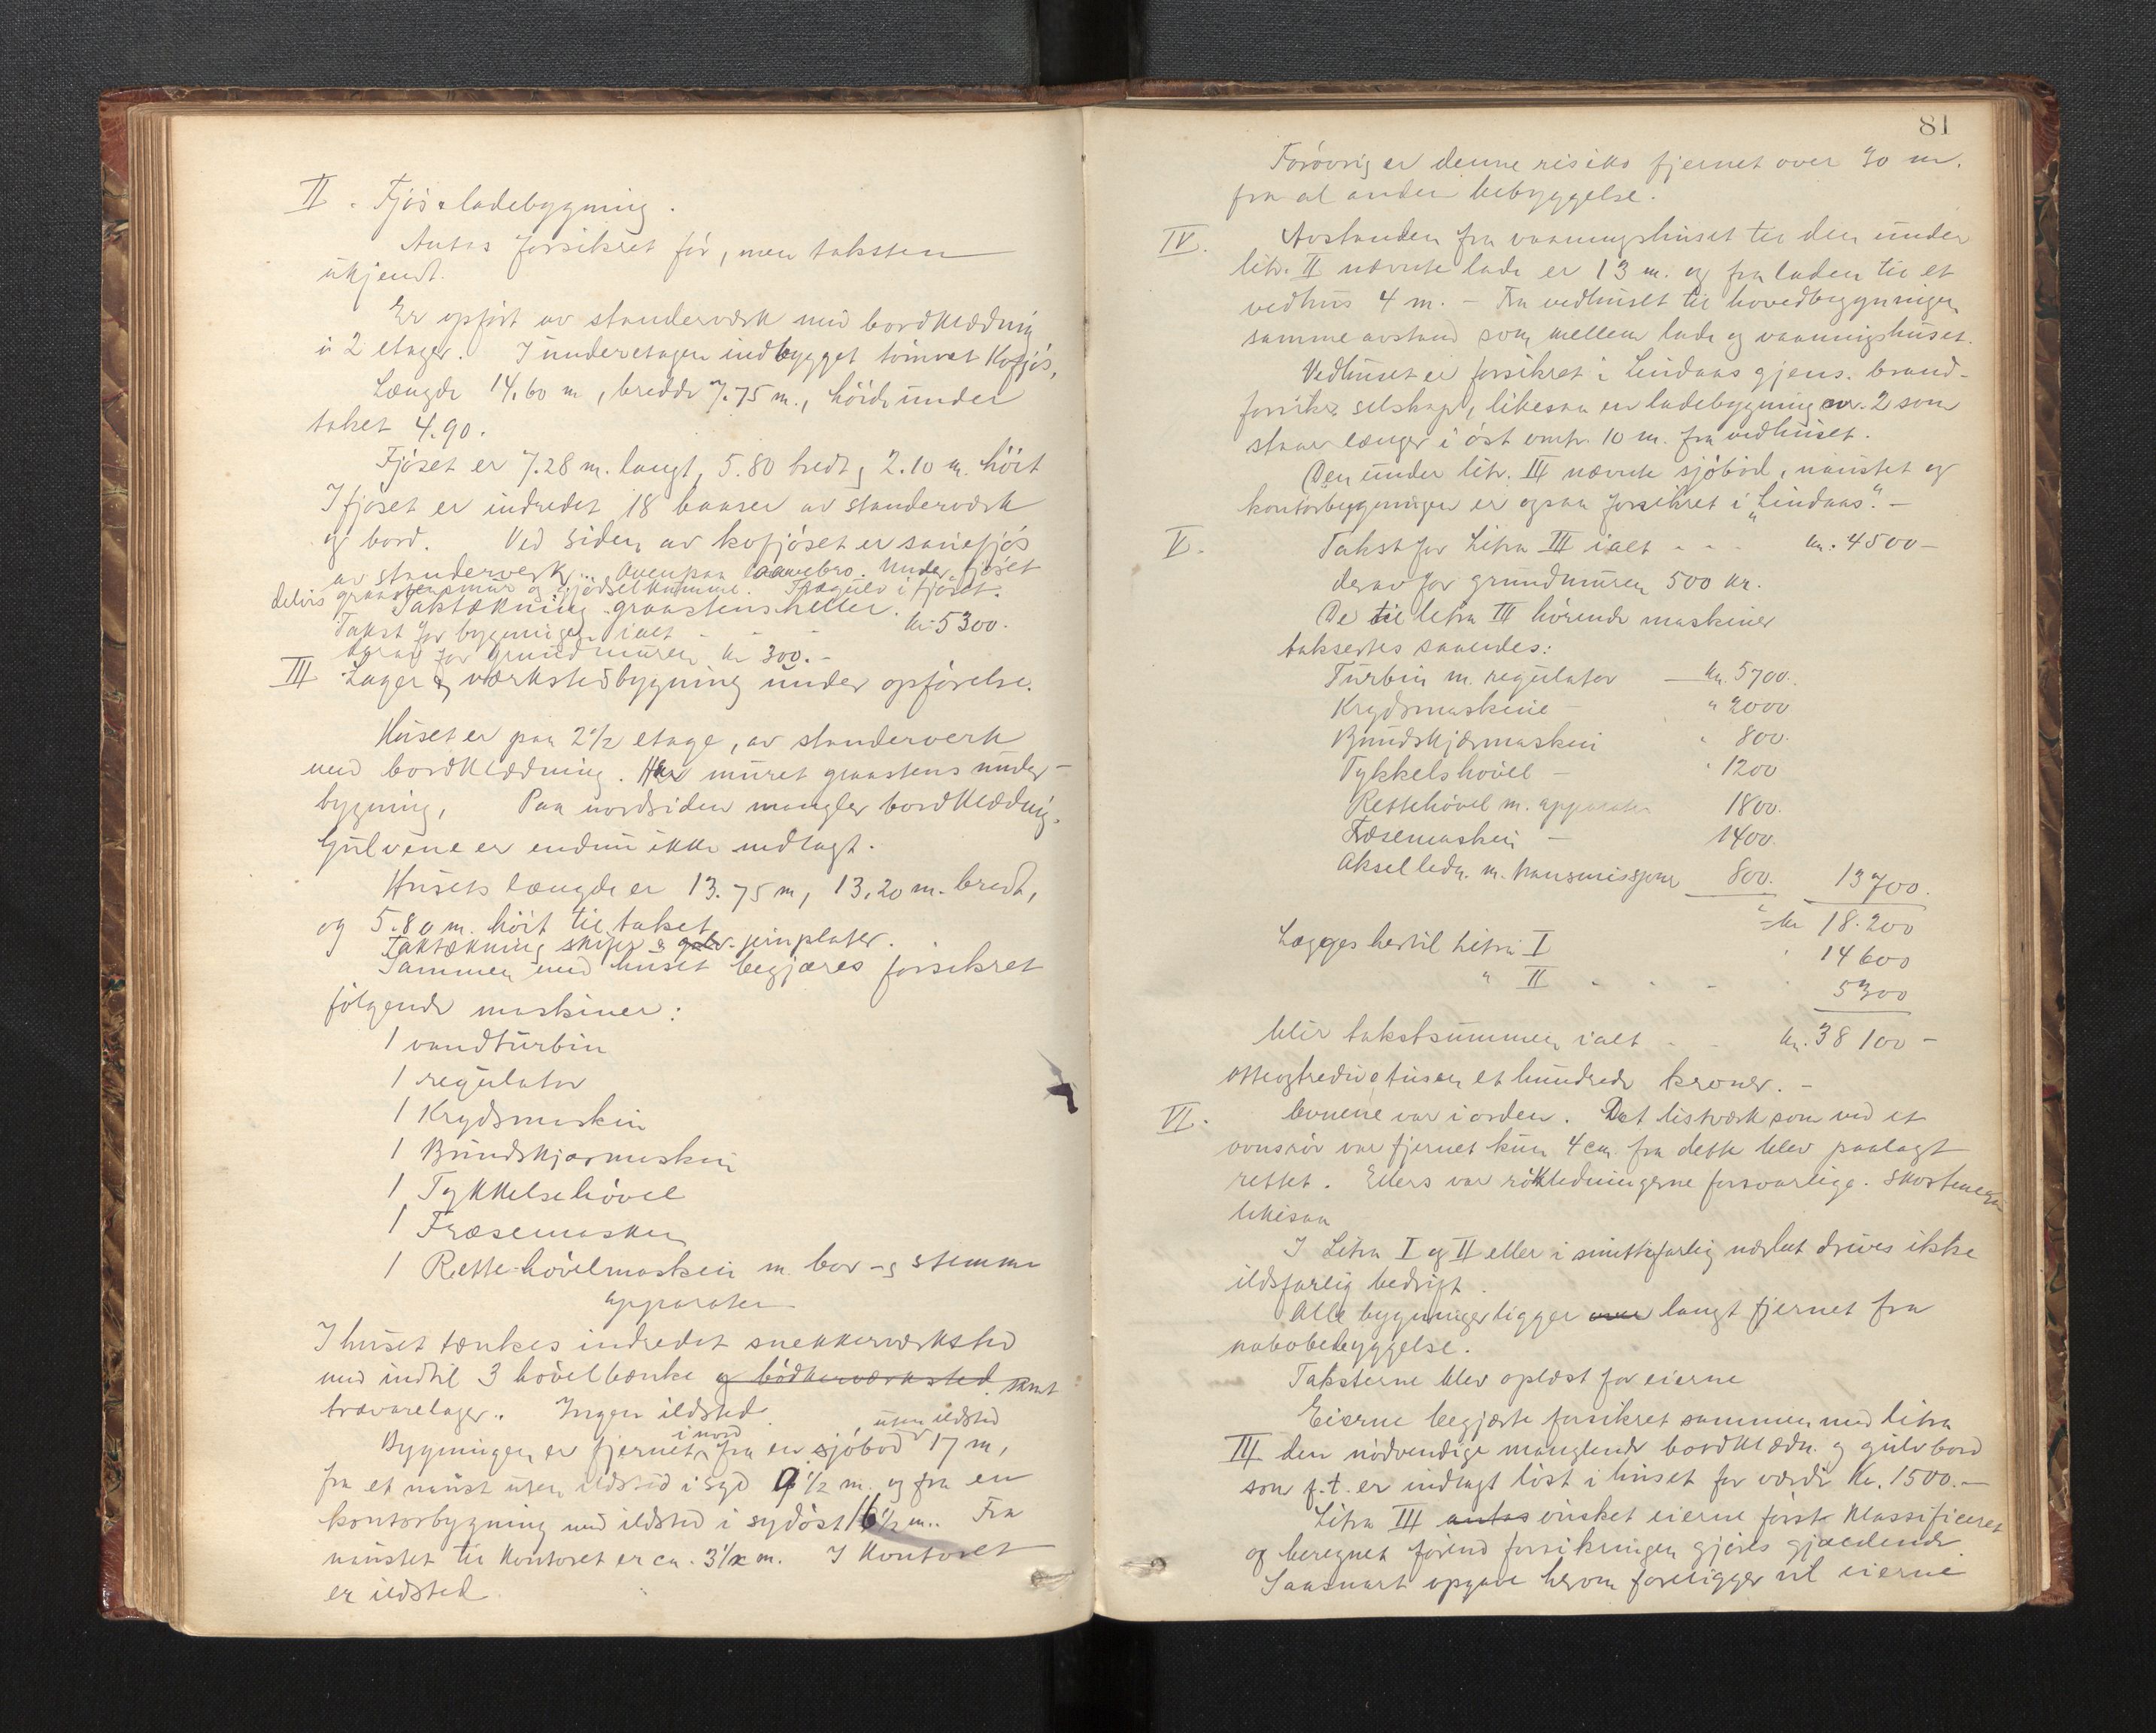 II. Fjös & ladebygning.
Antas forsikret för, men taksten
ukjendt.
Er opfört av standerværk med bordklædning
i 2 etager. I underetagen indbygget tömret Kofjös,
Længde 14.60 m, bredde 7.75 m., höide under
taket 4.90.
Fjöset er 7.28 m. langt, 5.80 bredt, 2.10 m. höit
I fjöset er indredet 18 baaser av standerværk
og bord. Ved siden av kofjöset er sauefjös
av standerverk. Ovenpaa laavebro. Under fjöset
delvis graastensmur og gjödselkumme. Trægulv i fjöset.
Taktækning graastensheller.
Takst for bygningen ialt - - - kr 5300.
derav for grundmuren kr 300.-
III Lager & værkstedbygning under opförelse.
Huset er paa 2 1/2 etage, av standerverk
med bordklædning. Har muret graastens under-
bygning, Paa nordsiden mangler bordklædning.
Gulvene er endnu ikke nedlagt.
Husets længde er 13.75 m, 13.20 m. bredt,
og 5.80 m. höit til taket
Taktækning skifer & galv. jernplater.
Sammen med huset begjæres forsikret
fölgende maskiner:
1 vandturbin
1 regulator
1 Krydsmaskin
1 Bundskjærmaskin
1 Tykkelsehövel
1 Fræsemaskin
1 Rette-hövelmaskin m. bor- & stemme
apparater
I huset tænkes indredet snekkerværksted
med indtil 3 hövelbænke og bödkerværksted. samt
trævarelager. Ingen ildsted.
i nord uten ildsted
Bygningen er fjernet fra en sjöbod 17 m,
fra et naust uten ildsted i syd 9 1/2 m. og fra en
kontorbygning med ildsted i sydöst 16 1/2 m. Fra
naustet til Kontoret er ca. 3 1/2 m. I Kontoret
er ildsted
81
Forövrig er denne risiko fjernet over 30 m.
fra al anden bebyggelse.
IV. Avstanden fra vaaningshuset til den under
litr. II nævnte lade er 13 m. og fra laden til et
vedhus 4 m. - Fra vedhuset til hovedbygningen
samme avstand som mellem lade og vaaningshuset.
Vedhuset er forsikret i Lindaas gjens. brand-
forsikr. selskap, likesaa en ladebygning nr. 2 som
staar længer i öst omtr. 10 m. fra vedhuset.
Den under litr. III nævnte sjöbod, naustet og
kontorbygningen er ogsaa forsikret i "Lindaas". -
V. Takst for Litra III ialt - - - kr. 4500 -
derav for grundmuren 500 kr.
De til litra III hörende maskiner
takseres saaledes:
Turbin m. regulator - kr. 5700.
Krydsmaskine - " 2000
Bundskjærmaskin " 800.
Tykkelshövel - " 1200
Rettehövel m. apparater 1800.
Fræsemaskin - 1400.
Aksel ledn. m. transmissjoner 800. 13700.
= kr 18.200
Lægges hertil Litra I 14600
" II - - - 5300
blir takstsummen ialt - - kr. 38100 -
otteogtredive tusen et hundrede kroner. -
VI. Ovnene var i orden. Det listverk som ved et
ovnsrör var fjernet kun 4 cm. fra dette blev paalagt
rettet. Ellers var rökledningerne forsvarlige. Skorstenene
likesaa
I Litra I og II eller i smittefarlig nærhet drives ikke
ildsfarlig bedrift.
Alle bygninger ligger over langt fjernet fra
nabobebyggelse.
Taksterne blev oplæst for eierne
Eierne begjærte forsikret sammen med litra
III den nödvendige manglende bordklædn. og gulvbord
som f.t. er indlagt löst i huset for værdi Kr. 1500.-
Litra III antas önsket eierne först klassificeret
og beregnet förend forsikringen gjöres gjældende.
Saasnart opgave herom foreligger vil eierne